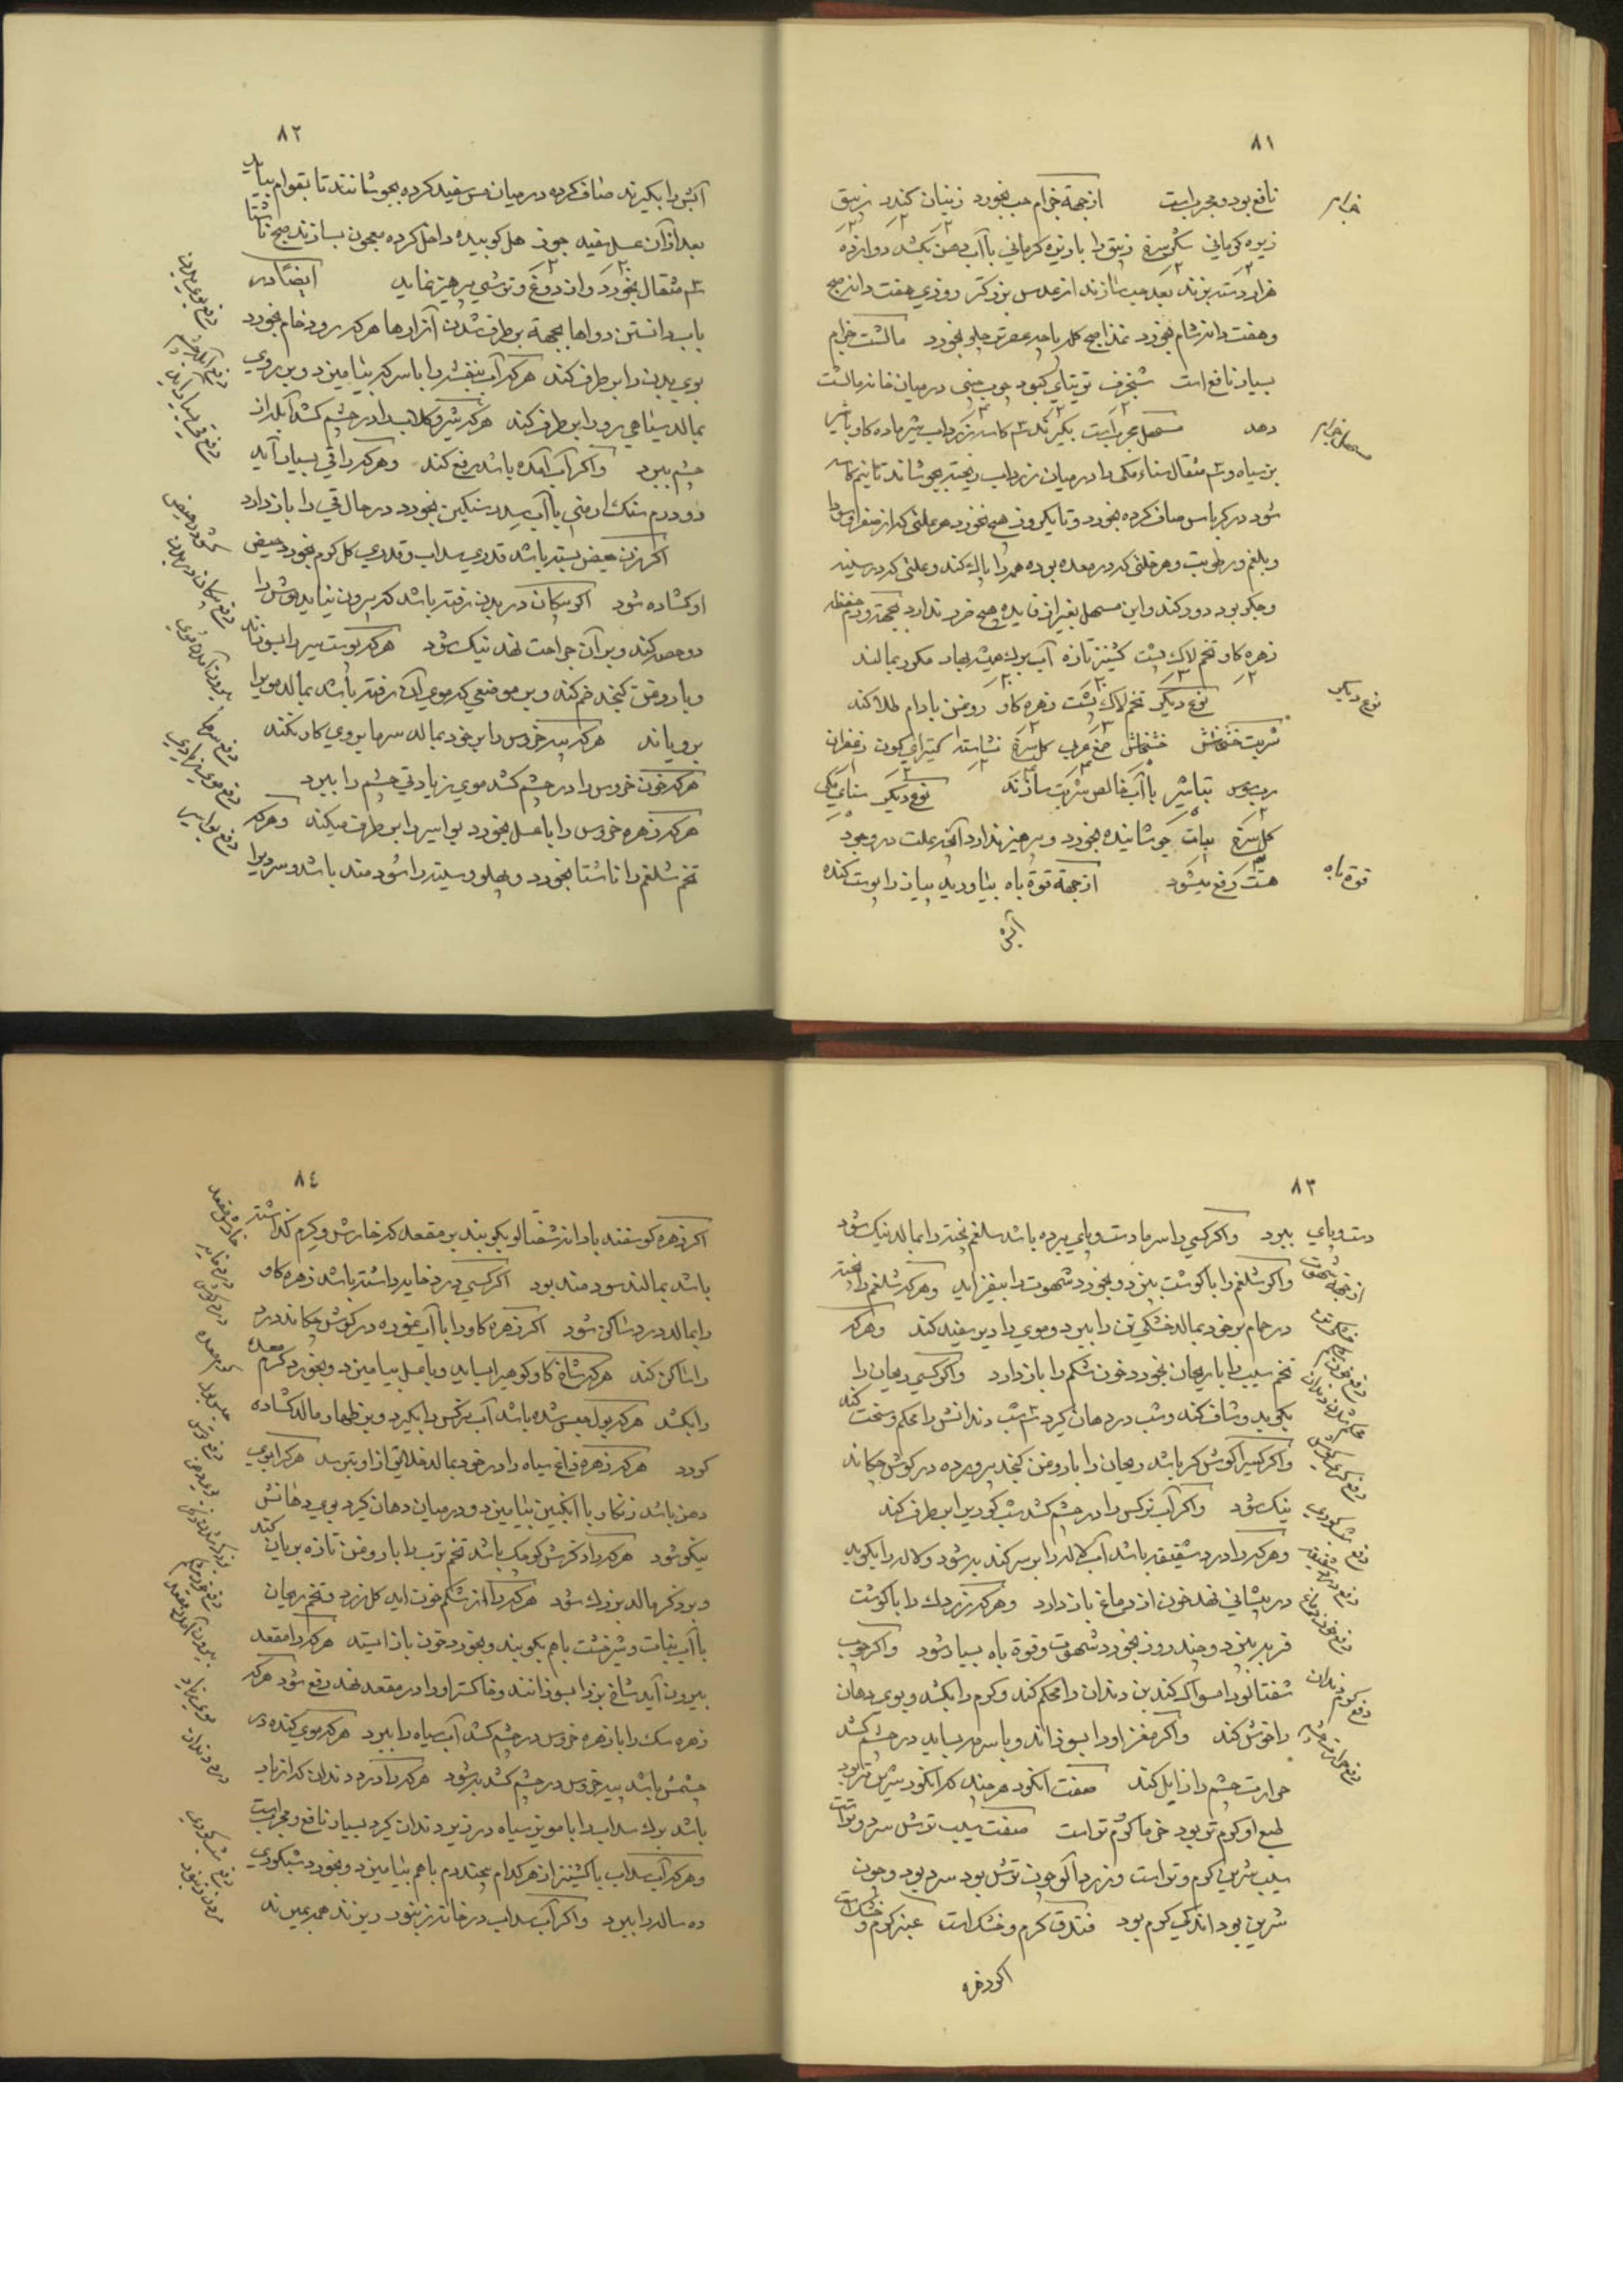 ۸۱
نافع بود و مجرب است از جهة خرام حب بخورد زنیان کندر زیبق
زیره کرمانی شکر سرخ زیبق را با زیره کرمانی با آب دهن بکشد دوازده
هزار دسته بزند بعد حب سازند از عدس بزرکتر روزی هفت دانه صبح
و هفت دانه شام بخورد غذا صبح کله پاچه عصر تن چلو بخورد مالشت خرام
بسیار نافع است شنجرف توتیای کبود چوب چینی در میان خانه مالشت
دهد مسهل مجرب است بکیرند کاسه زرداب شیر ماده کاو یا شیر
بز سیاه و مثقال سناء مکی را در میان زرداب ریخته بجوشاند تا نیم کاسه
شود در کرباس صاف کرده بخورد و تا یکروز هیچ نخورد هر علتی که از صفرا و سودا
و بلغم و رطوبت و هر خلتی که در معده بوده همه را پاک کند و علتی که در سینه
و جکر بود دور کند و این مسهل بغیر از فایده هیچ ضرر ندارد بجهة ورم
زهره کاو تخم لاک پشت کشنیز تازه آب برک همیشه بهار مکرر بمالند
نوع دیکر تخم لاک پشت زهره کاو روغن بادام طلا کند
شربت خشخاش خشخاش صمغ عرب کل سرخ نشاسته کتیرای کون زعفران
رب سوس تباشیر با آب خالص شربت سازند نوع دیکر سنای مکی
کل سرخ نبات جوشانیده بخورد و پرهیز ندارد آنچه علت در وجود
هست رفع میشود از جهة قوة باه بیاورید پیاز را پوست کنده
آبش
خرام
مسهل خرام
نوع دیکر
قوة باه
۸۲
آبش را بکیرند صاف کرده در میان مس سفید کرده بجوشانند تا بقوام بیاید
بعد از آن عسل سفید جوز هل کوبیده داخل کرده معجون بسازند صبح ناشتا
مثقال بخورد و از دوغ و ترشی پرهیز نماید ایضاً در
باب دانستن دواها بجهة برطرف شدن آزارها هر که رود خام بخورد
بوی بدن را برطرف کند هر که آب بنفشه را با سرکه بیامیزد و بر روی
بمالد سیاهی رو را برطرف کند هر که شیر و کلاب را در چشم کشد آبله از
چشم ببرد و اکر آب آمده باشد رفع کند و هر که را قی بسیار آید
دو درم سنک ارمنی با آب سرد سنکین بخورد در حال قی را باز دارد
اکر زن حیض بسته باشد قدری سداب و قدری کل کرم بخورد حیض
او کشاده شود اکر پیکان در بدن رفته باشد که بیرون نیاید موش را
دو حصه کند و بر آن جراحت نهد نیک شود هر که پوست سیر را بسوزاند
و با روغن کنجد ضم کند و بر موضعی که موی آن رفته باشد بمالد موی را
برویاند هر که پیه خروس را بر خود بمالد سرما بر وی کار نکند
هر که خون خروس را در چشم کشد موی زیادتی چشم را ببرد
هر که زهره خروس را با عسل بخورد بواسیر را برطرف میکند و هر که
تخم شلغم را ناشتا بخورد و پهلو و سینه را سود مند باشد و سر
دفع بوی بدن
دفع پیکان در بدن
دفع سرما
دفع موی زیادی
دفع بواسیر
۸۳
دست و پای ببرد و اکر کسی را سرما دست و پای برده باشد شلغم پخته را بمالد نیک شود
و اکر شلغم را با کوشت بپزد و بخورد شهوت را بیفزاید و هر که شلغم را پخته
در حمام بر خود بمالد خشکی تن را ببرد و موی را دیر سفید کند و هر که
تخم سیب را با ریحان بخورد خون شکم را باز دارد و اکر کسی ریحان را
بکوبد و شاف کند و شب در دهان کیرد شب دندانش را محکم و سخت کند
و اکر کسی را کوش کر باشد ریحان را با روغن کنجد پرورده در کوش چکاند
نیک شود و اکر آب نرکس را در چشم کشد شب کوری را برطرف کند
و هر که را درد شقیقه باشد آب لاله را بر سر کند به شود و لاله را بکوبد
در پیشانی نهد خون از دماغ باز دارد و هر که زردک را با کوشت
فربه بپزد و چند روز بخورد شهوت و قوة باه بسیار شود و اکر چوب
شفتالو را مسواک کند بن دندان را محکم کند و کرم را بکشد و بوی دهان
را خوش کند و اکر مغز او را بسوزاند و با سرمه بساید در چشم کشد
حرارت چشم را زایل کند صفت انکور هر چند که انکور شیرین تر بود
طبع او کرم تر بود خرما کرم تر است صفت سیب ترش سرد و تر است
سیب شیرین کرم و تر است و زردآلو چون ترش بود سرد بود و چون
شیرین بود اندکی کرم بود فندق کرم و خشک است عنبر کرم و خشک است
اکر زهره
از جهة شهوت
دفع شبکوری
دفع درد شقیقه
دفع کرم دندان
دفع حرارت چشم
۸٤
اکر زهره کوسفند با دانه شفتالو بکوبند بر مقعد که خارش و کرم داشته
باشد بمالند سود مند بود اکر کسی درد خایه داشته باشد زهره کاو
را بمالد درد ساکن شود اکر زهره کاو را با آب غوره در کوش چکاند درد
را ساکن کند هر که شاخ کاو کوهی را بساید و با عسل بیامیزد و بخورد کرم معده
را بکشد هر که بول حبس شده باشد آب نرکس را بکیرد و بر ظهار مالد کشاده
کردد هر که زهره زاغ سیاه را در خود بمالد خلایق از او بترسد هر که را بوی
دهن باشد زنکار با انکبین بیامیزد و در میان دهان کیرد بوی دهانش
نیکو شود هر که را ذکرش کوچک باشد تخم ترب را با روغن تازه بریان کند
و بر ذکر مالد بزرک شود هر که را از شکم خون آید کل زرد و تخم ریحان
با آب نبات و شیرخشت با هم بکوبند و بخورد خون باز ایستد هر که را مقعد
بیرون آید شاخ بز را بسوزانند و خاکستر او را در مقعد نهد رفع شود هر که
زهره سک را با زهره خروس در چشم کشد آب سیاه را ببرد هر که موی کنده در
چشمش باشد پیه خروس در چشم کشد به شود هر که را درد دندان که از باد
باشد برک سداب را با مویز سیاه در زیر دندان کیرد بسیار نافع و مجرب است
و هر که آب سداب با کشنیز از هر کدام پنجدرم با هم بیامیزد و بخورد شبکوری
ده ساله را ببرد و اکر آب سداب در خانه زنبور ریزند همه بمیرند
خارش مقعد
درد خایه
درد کوش
کرم معده
حبس بول
موی زیاد
درد دندان
دفع شبکوری
مردن زنبور